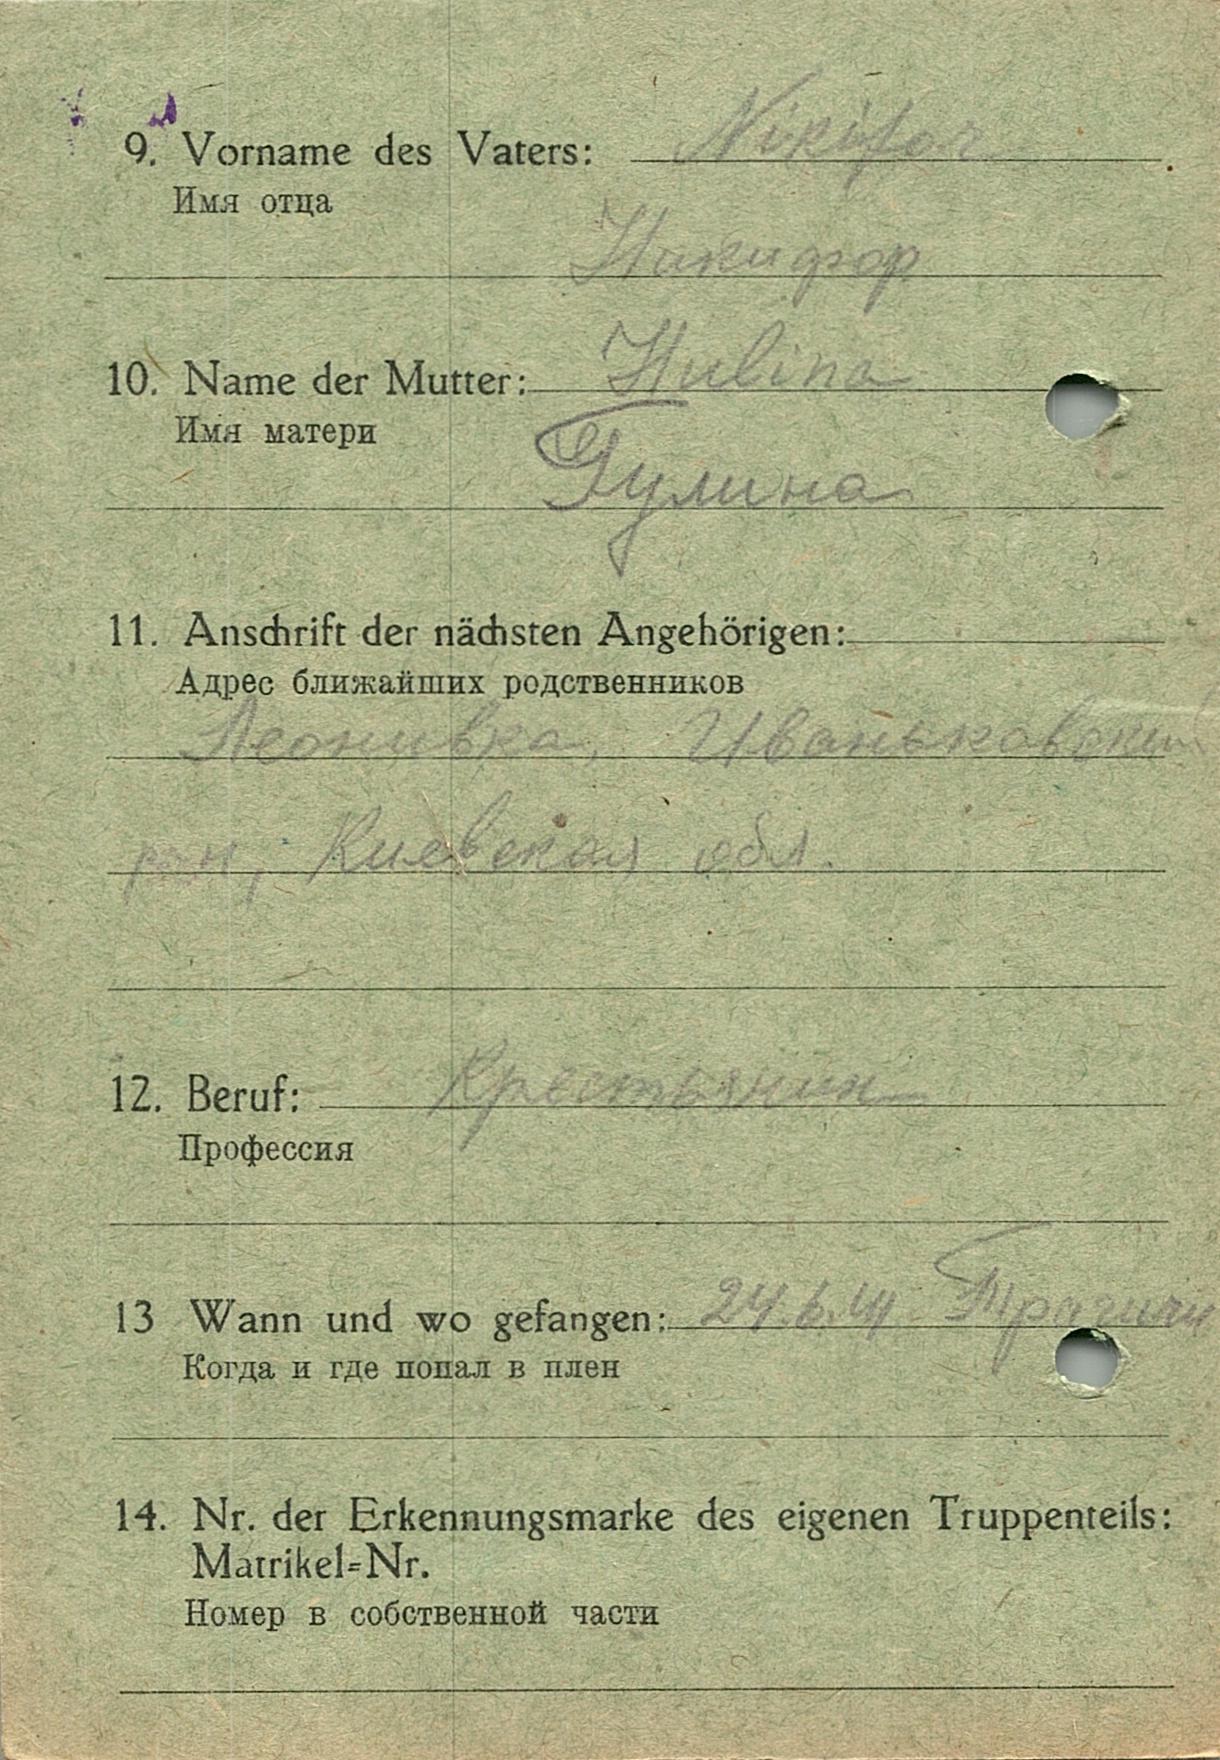 9. Vorname des Vaters: Nikifor
Имя отца
Никифор
10. Name der Mutter: Hulina
Имя матери
Гулина
11. Anschrift der nächsten Angehörigen:
Адрес ближайших родственников
Леонивка, Иваньковский
рон, Киевская обл.
12. Beruf: Крестьянин
Профессия
13 Wann und wo gefangen: 24.6.41
Когда и где попал в плен
14. Nr. der Erkennungsmarke des eigenen Truppenteils:
Matrikel=Nr.
Номер в собственной части